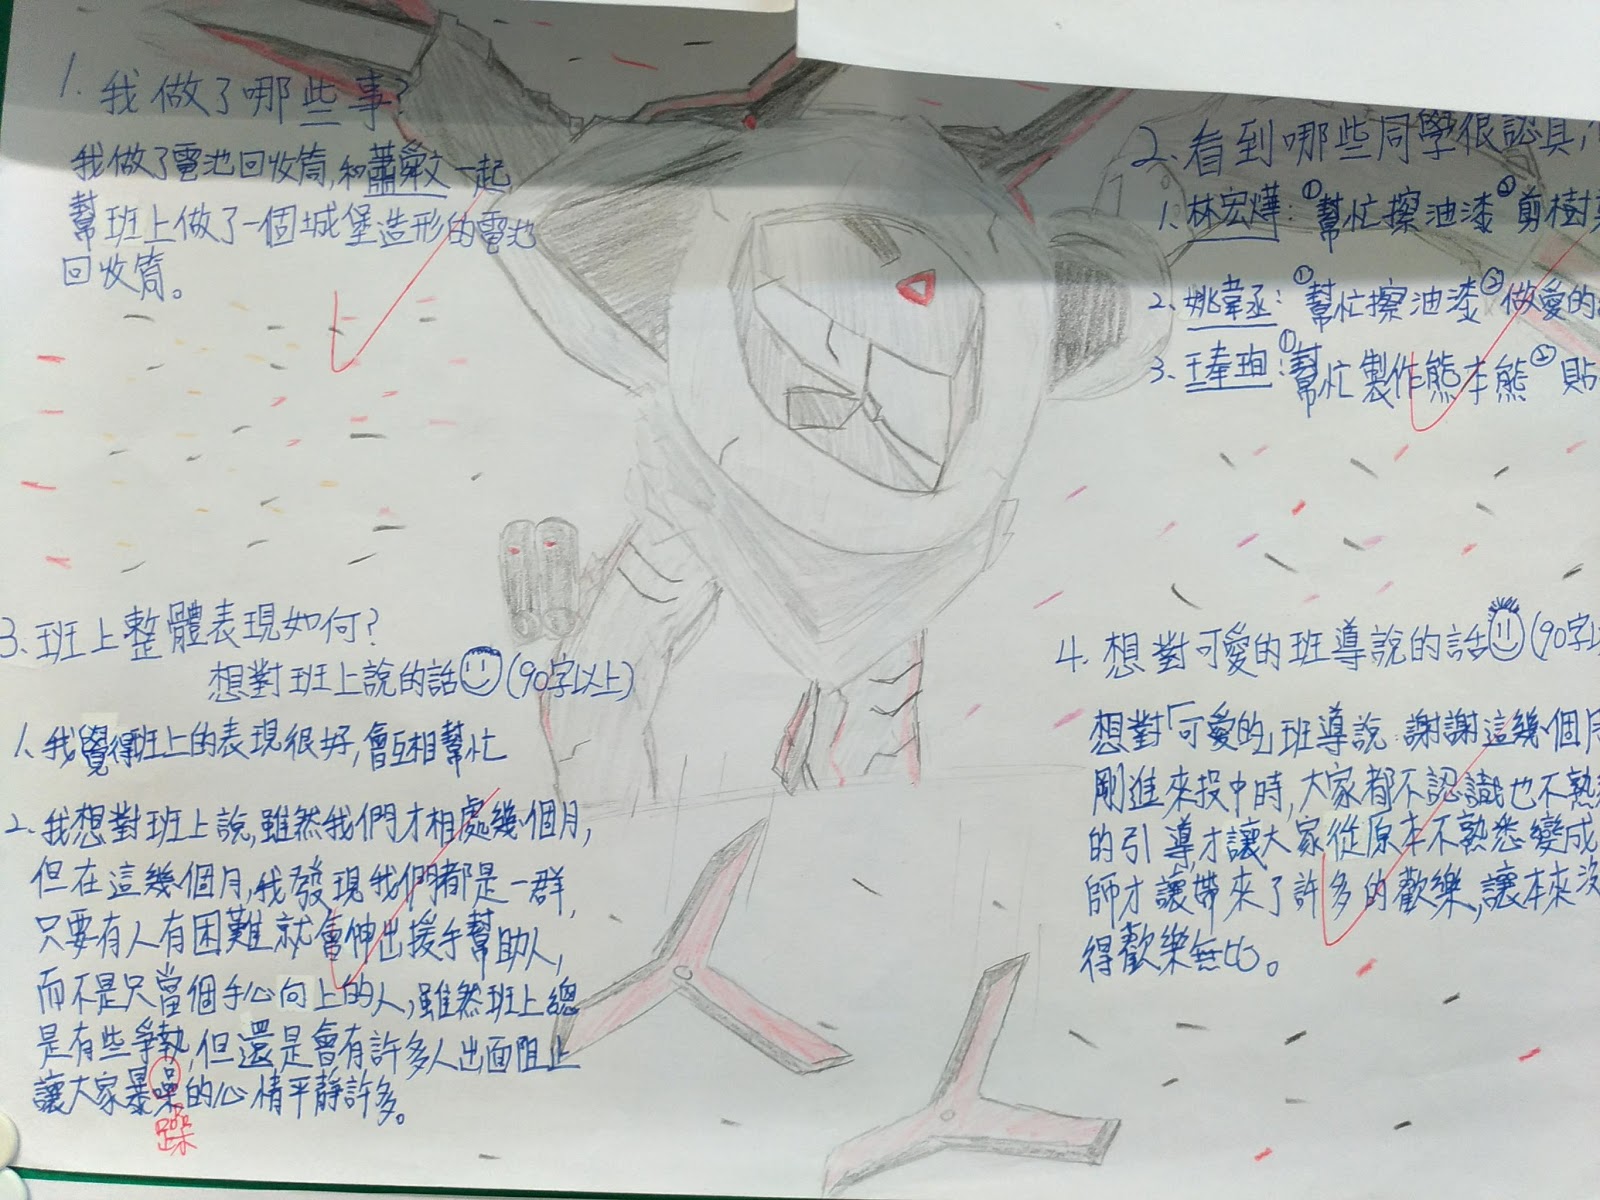 1. 我做了哪些事?
我做了電池回收筒,和蕭舜文一起
幫班上做了一個城堡造形的電池
回收筒。
2. 看到哪些同學很認真,
1. 林宏燁:①幫忙擦油漆②剪樹
2. 姚葦丞:①幫忙擦油漆②做愛的
3. 王奉珣:①幫忙製作熊本熊②貼
3. 班上整體表現如何?
想對班上說的話(90字以上)
1. 我覺得班上的表現很好,會互相幫忙
2. 我想對班上說,雖然我們才相處幾個月,
但在這幾個月,我發現我們都是一群,
只要有人有困難就會伸出援手幫助人,
而不是只當個手心向上的人,雖然班上總
是有些爭執,但還是會有許多人出面阻止
讓大家暴噪的心情平靜許多。
躁
4. 想對可愛的班導說的話(90字以
想對「可愛的」班導說 謝謝這幾個月
剛進來投中時,大家都不認識也不熟
的引導才讓大家從原本不熟悉變成
師才讓帶來了許多的歡樂,讓本來沒
得歡樂無比。